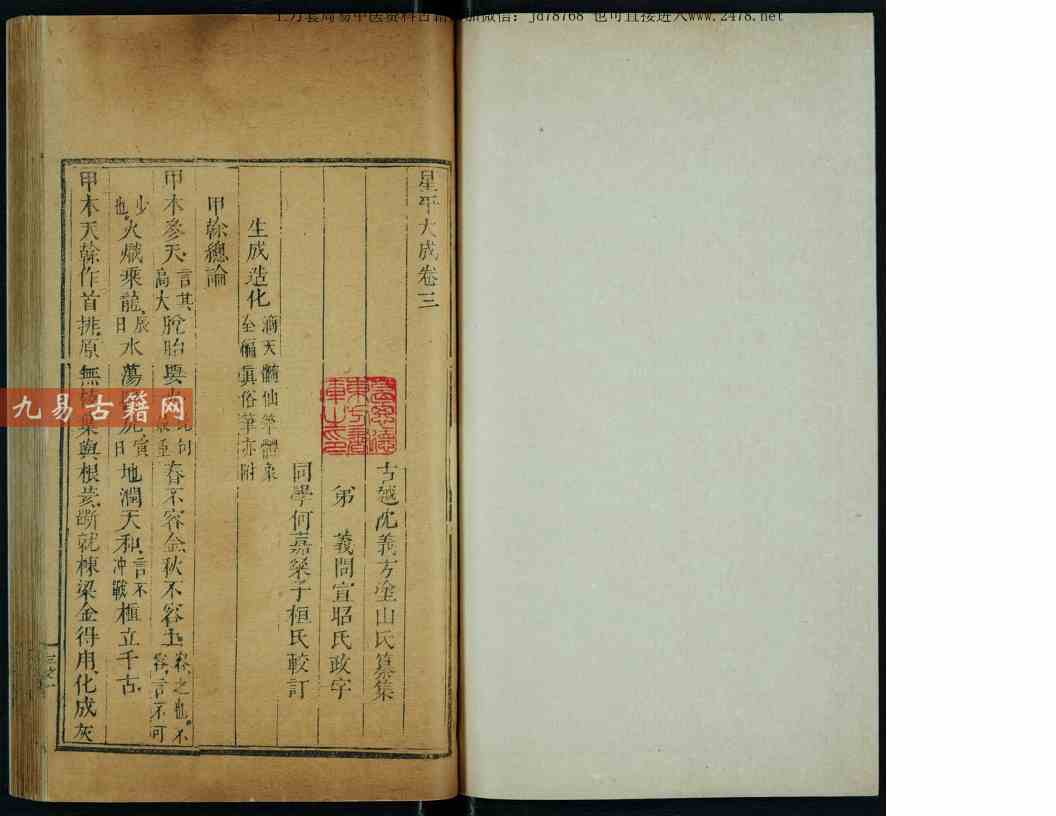 星平大成卷三
古越沈義方塗山氏纂集
弟 義問宣昭氏政字
同學何嘉榮子桓氏較訂
生成造化 滴天髓仙筆體象
至編眞俗筆亦附
甲榦總論
甲木參天言其高大脫胎要火 春不容金秋不容土 容之也不容言不可
少也火熾乘龍辰日水蕩 寅日地潤天和言不冲戰植立千古
甲木天榦作首排原無 葉與根荄斷就棟梁金得用化成灰
九易古籍网
微信：jd78768 也可直接进入www.2478.net